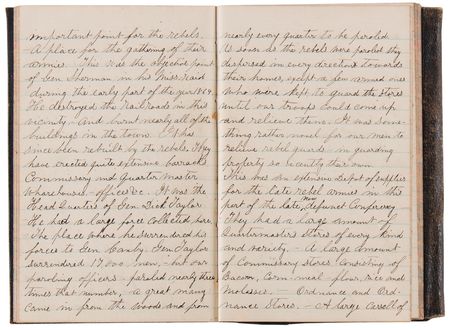 important point for the rebels.
A place for the gathering of their
armies. This was the objective point
of Gen Sherman in his Miss. raid
during the early part of the year 1864.
He destroyed the Railroads in this
vicinity - and burnt nearly all of the
buildings in the town. It has
since been rebuilt by the rebels. They
have erected quite extensive barracks
Commissary and Quarter Master
Warehouses, offices &c. It was the
Head Quarters of Gen Dick Taylor
He had a large force collected here
The place where he surrendered his
forces to Gen Canby. Gen Taylor
surrendered 17,000 men, - but our
paroling officers - paroled nearly three
times that number, - a great many
came in from the woods and from
nearly every quarter to be paroled
As soon as the rebels were paroled they
dispersed in every direction towards
their homes, except a few armed ones
who were kept to guard the stores
until our troops could come up
and relieve them. It was some-
thing rather novel for our men to
relieve rebel guards in guarding
property so recently their own.
This was an extensive Depot of supplies
for the late rebel armies in this
part of the late, now defunct Confederacy
They had a large amount of
Quartermasters Stores of every kind
and variety. - A large amount
of Commissary stores consisting of
Bacon, corn meal - flour, rice and
Molasses - Ordnance and Ord-
nance Stores. - A large of